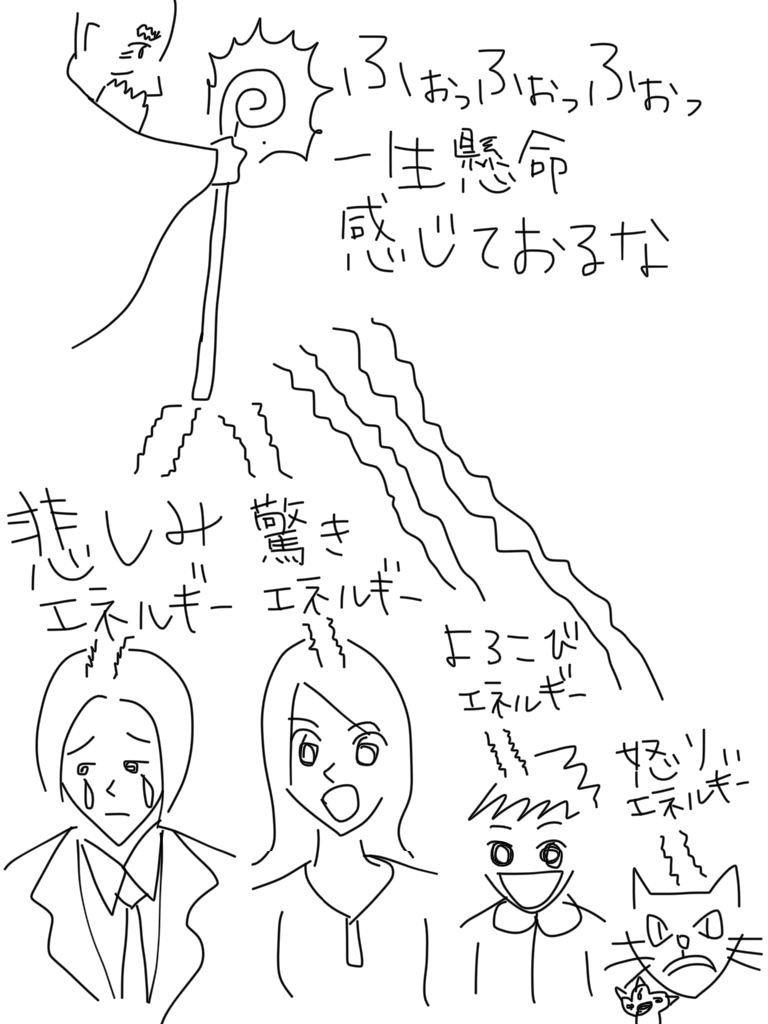 ふぉっふぉっふぉっ
一生懸命
感じておるな
悲しみ
エネルギー
驚き
エネルギー
よろこび
エネルギー
怒り
エネルギー